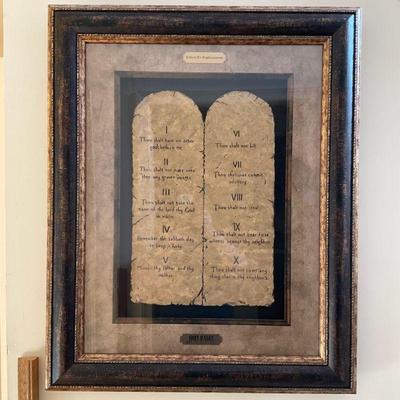 Thou shalt have no other
gods before me
II
Thou shalt not make unto
thee any graven images
III
Thou shalt not take the
name of the lord thy God
in vain
IV
Remember the sabbath day
to keep it holy
V
Honor thy father and thy
mother
VI
Thou shalt not kill
VII
Thou shalt not commit
adultery
VIII
Thou shalt not steal
IX
Thou shalt not bear false
witness against thy neighbor
X
Thou shalt not covet any
thing that is thy neighbor's